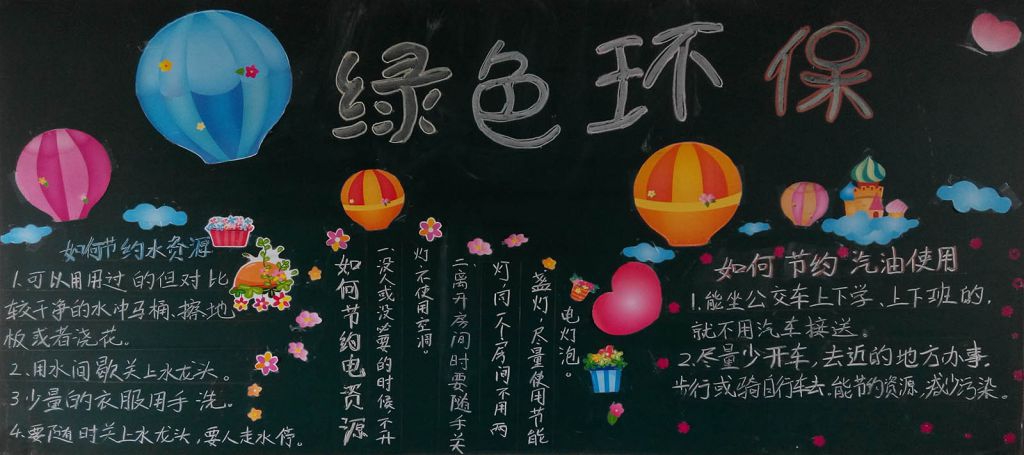 绿色环保
如何节约水资源
1.可以用用过的但对比
较干净的水冲马桶、擦地
板或者浇花。
2.用水间歇关上水龙头。
3少量的衣服用手洗。
4.要随时关上水龙头,要人走水停。
如何节约电资源
一、没人或没必要的时候不开
灯不使用空调。
二、离开房间时要随手关
灯,同一个房间不用两
盏灯,尽量使用节能
电灯泡。
如何节约汽油使用
1.能坐公交车上下学、上下班的,
就不用汽车接送。
2.尽量少开车,去近的地方办事,
步行或骑自行车去.能节约资源,减少污染。